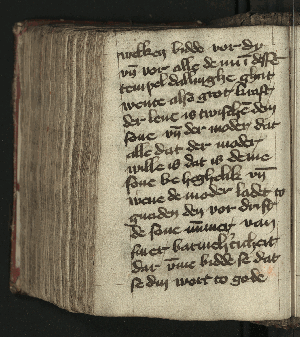 welken bidde vor dy
vn̄ vor alle de mit desse
tempel dellinghe ghat
wente also grot kraft
der leue is twischē den
sone vn̄ der moder dat
alle dat der moder
wille is dat is deme
sone beheghelik vn̄
wene de moder ladet to
gnaden den vor drift
de sone nūmer van
siner barmherticheit
dar vm̄e bidde se dat
se dyn wort to gode